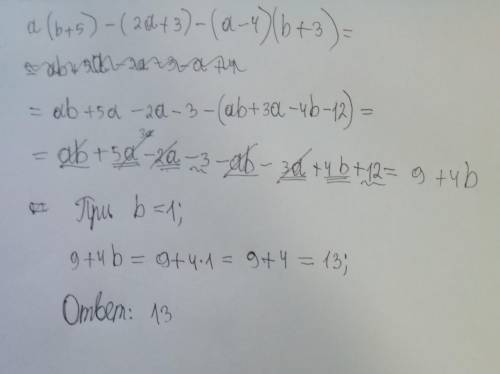 a(b+5)-(2a+3)-(a-4)(b+3)=
= ab+5a-2a-3-(ab+3a-4b-12)=
3a
= ab+5a-2a-3-ab-3a+4b+12= 9+4b
При b=1;
9+4b = 9+4·1 = 9+4 = 13;
Ответ: 13